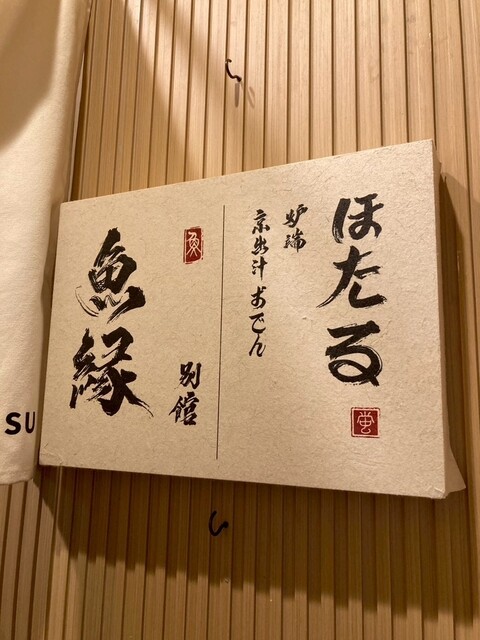 ほたる
蛍
炉端
京出汁おでん
魚
別館
魚縁
SU